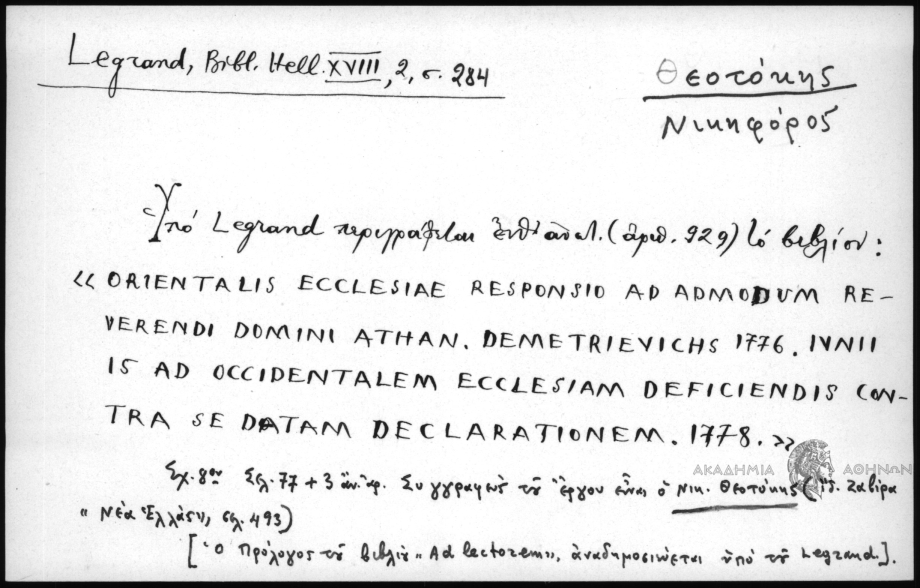 Legrand, Bibl. Hell. XVIII, 2, σ. 284
Θεοτόκης
Νικηφόρος
Ὑπό Legrand περιγράφεται (ἀριθ. 929) τό βιβλίον:
« ORIENTALIS ECCLESIAE RESPONSIO AD ADMODUM RE-
VERENDI DOMINI ATHAN. DEMETRIEVICHS 1776. IVNII
15 AD OCCIDENTALEM ECCLESIAM DEFICIENDIS CON-
TRA SE DATAM DECLARATIONEM. 1778. »
ΑΚΑΔΗΜΙΑ ΑΘΗΝΩΝ
Σχ. 8ον Σελ. 77 + 3 ἀν. ἀρ. Συγγραφεὺς τοῦ ἔργου εἶναι ὁ Νικ. Θεοτόκης (Ἰ. Ζαβίρα
« Νέα Ἑλλάς», σελ. 493)
[ Ὁ Πρόλογος τοῦ βιβλίου « Ad lectorem», ἀναδημοσιεύεται ὑπό τοῦ Legrand.].